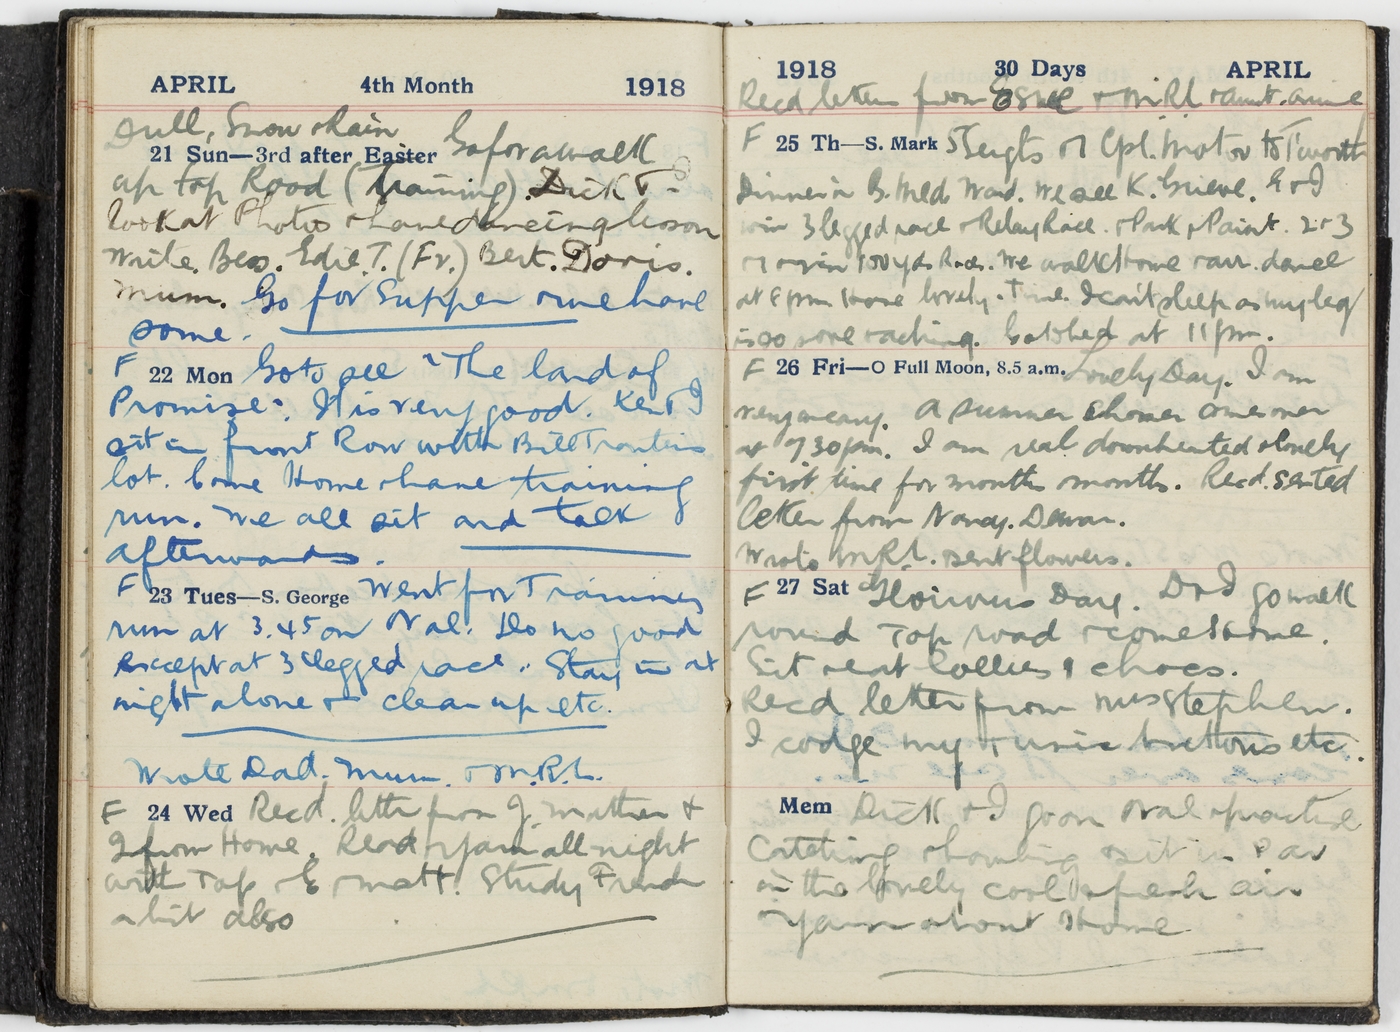 APRIL 4th Month 1918
Dull, Snow & Rain
21 Sun—3rd after Easter Go for a walk
up top Road (training). Dick & I
look at Photos & have dancing lesson
Write. Bess. Edie. T. (Fr.) Bert. Doris.
Mum. Go for Supper & we have
some.
F 22 Mon Go to see "The land of
Promise". It is very good. Ken & I
sit in front Row with Bill
lot. Come Home & have training
run. We all sit and talk
afterwards.
F 23 Tues—S. George Went for Training
run at 3.45 on Oval. Do no good
except at 3 legged race. Stay in at
night alone & clean up etc.
Wrote Dad. Mum. & M.R.L.
F 24 Wed Recd. letter from J. Mather &
2 from Home. Read & yarn all night
with Tap & E & Matt. Study French
a bit also
1918 30 Days APRIL
Recd letters from & M.R.L & aunt. annie
F 25 Th—S. Mark 5 Sergts & 1 Cpl. Motor to T'worth
Dinner in B. Med Ward. We see K. Grieve. E & I
win 3 legged race & Relay Race. & Park & Paint. 2 & 3
in 100 yds Races. We walk Home dance
at 8 pm Home lovely. Time. I can't sleep as my leg
is so sore & aching. Got to bed at 11 pm.
F 26 Fri—O Full Moon, 8.5 a.m. Lovely Day. I am
very weary. A summer shower comes over
at 7 30 pm. I am real downhearted & lonely
first time for months & months. Recd. scented
letter from Nancy. Dewar.
Wrote M.R.L. sent flowers.
F 27 Sat Glorious Day. D and I go walk
round Top road & come Home.
Sit & eat Lollies & chocs.
Recd letter from Miss Stephen.
I dodge my & buttons etc.
Mem Dick & I go on Oval & practice
Catching & bowling & sit in
in the lovely cool & fresh air
& yarn about Home